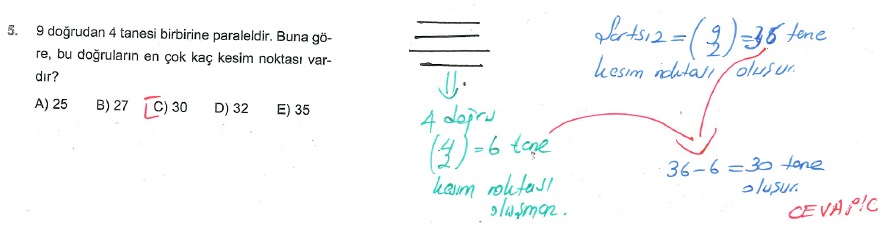 5. 9 doğrudan 4 tanesi birbirine paraleldir. Buna gö-
re, bu doğruların en çok kaç kesim noktası var-
dır?
A) 25 B) 27 C) 30 D) 32 E) 35
Şartsız = (9 2) = 36 tane
kesim noktası oluşur.
4 doğru
(4 2) = 6 tane
kesim noktası
oluşmaz.
36-6 = 30 tane
oluşur.
CEVAP: C